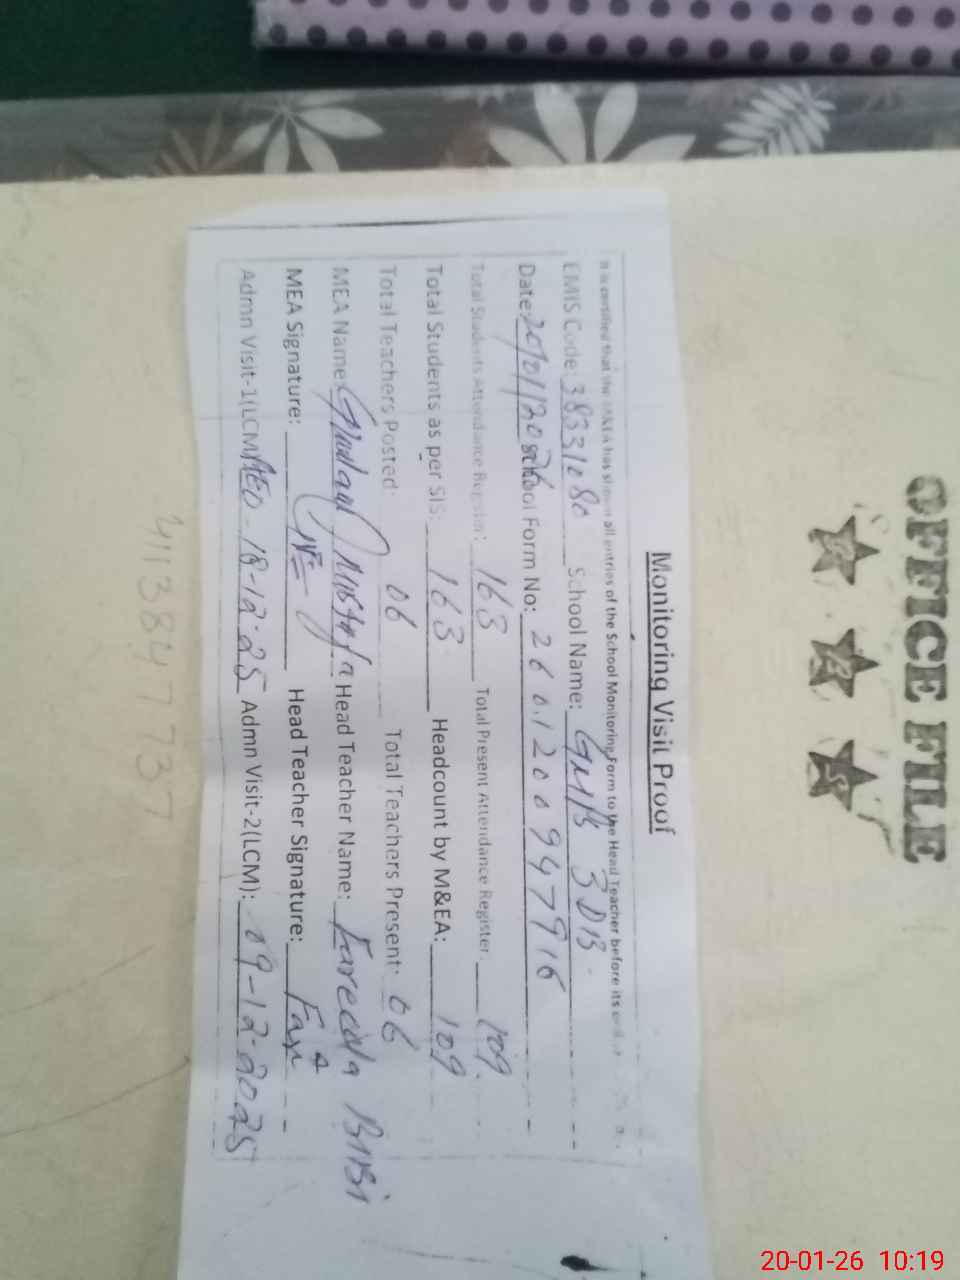 Monitoring Visit Proof
It is certified that the MEA has shown all entries of the School Monitoring Form to the Head Teacher before its
EMIS Code: 38331080 School Name: GMPS 3DB
Date: 20/01/2026 School Form No: 260120094 7916
Total Students Attendance Register: 163 Total Present Attendance Register: 109
Total Students as per SIS: 163 Headcount by M&EA: 109
Total Teachers Posted: 06 Total Teachers Present: 06
MEA Name: Ghulam Mustafa Head Teacher Name: Fareeda BiBi
MEA Signature: Head Teacher Signature:
Admn Visit-1(LCM AEO-18-12-25 Admn Visit-2(LCM): 09-12-2025
OFFICE FILE
20-01-26 10:19